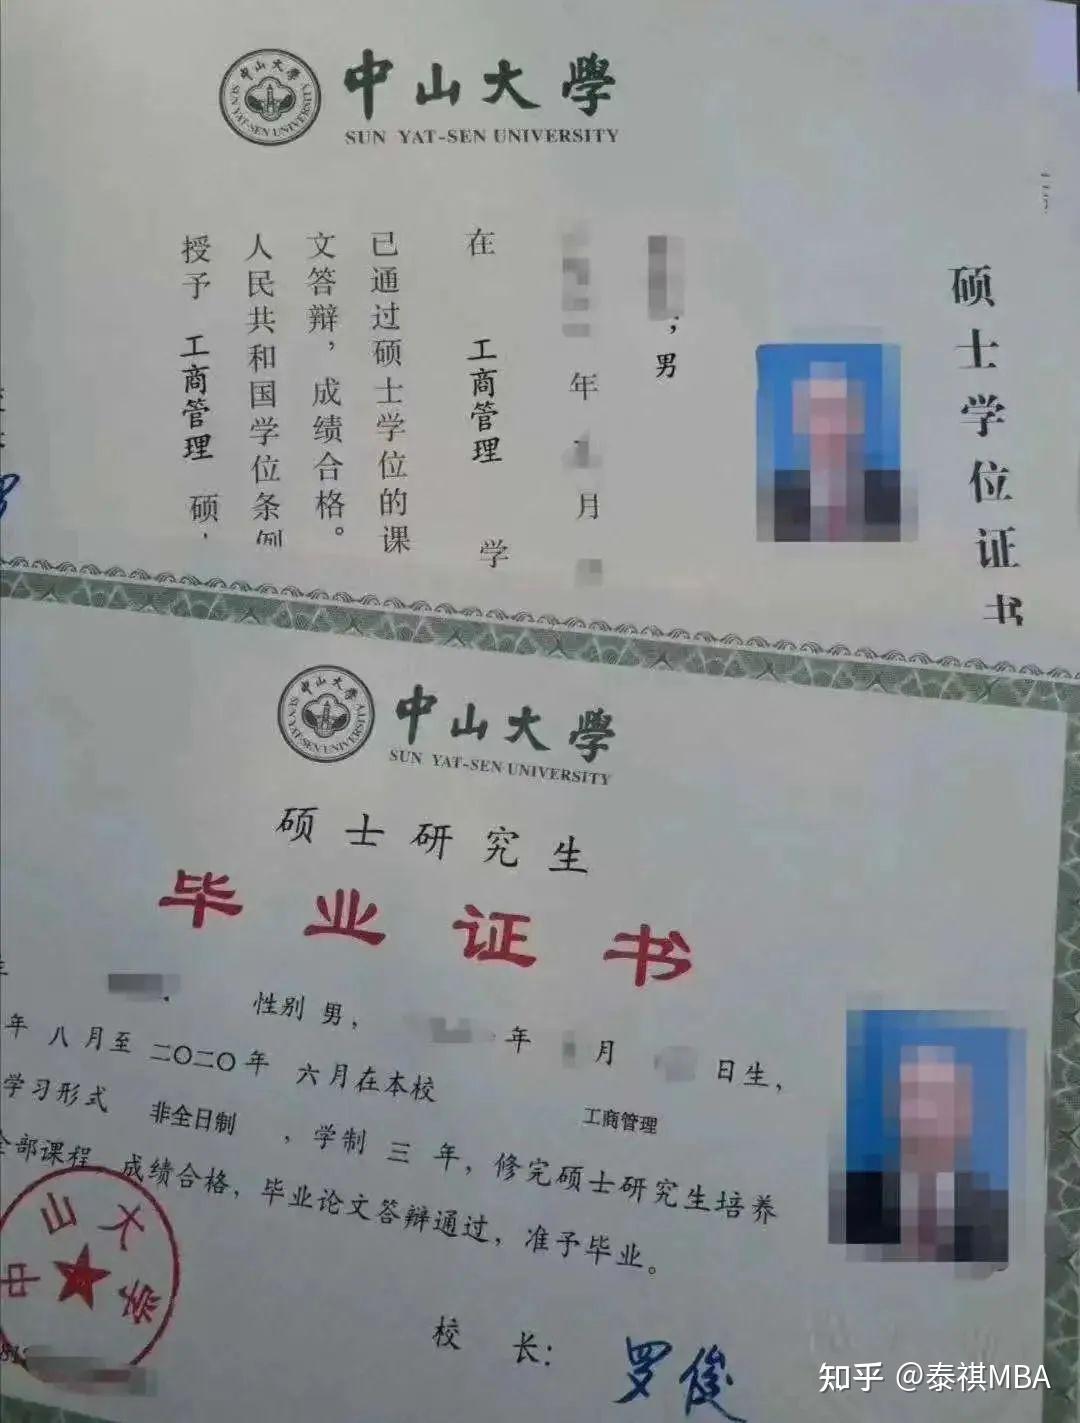 中山大學
SUN YAT-SEN UNIVERSITY
中山大學
SUN YAT-SEN UNIVERSITY
硕士学位证书
；男
年 月
在 工商管理 学
已通过硕士学位的课
文答辩，成绩合格。
人民共和国学位条例
授予 工商管理 硕
中山大學
SUN YAT-SEN UNIVERSITY
中山大學
SUN YAT-SEN UNIVERSITY
硕士研究生
毕业证书
性别 男， 年 月 日生，
年 八 月至 二〇二〇 年 六 月在本校 工商管理
学习形式 非全日制 ，学制 三 年，修完硕士研究生培养
全部课程，成绩合格，毕业论文答辩通过，准予毕业。
中山大学
校 长：
罗俊
知乎 @泰祺MBA